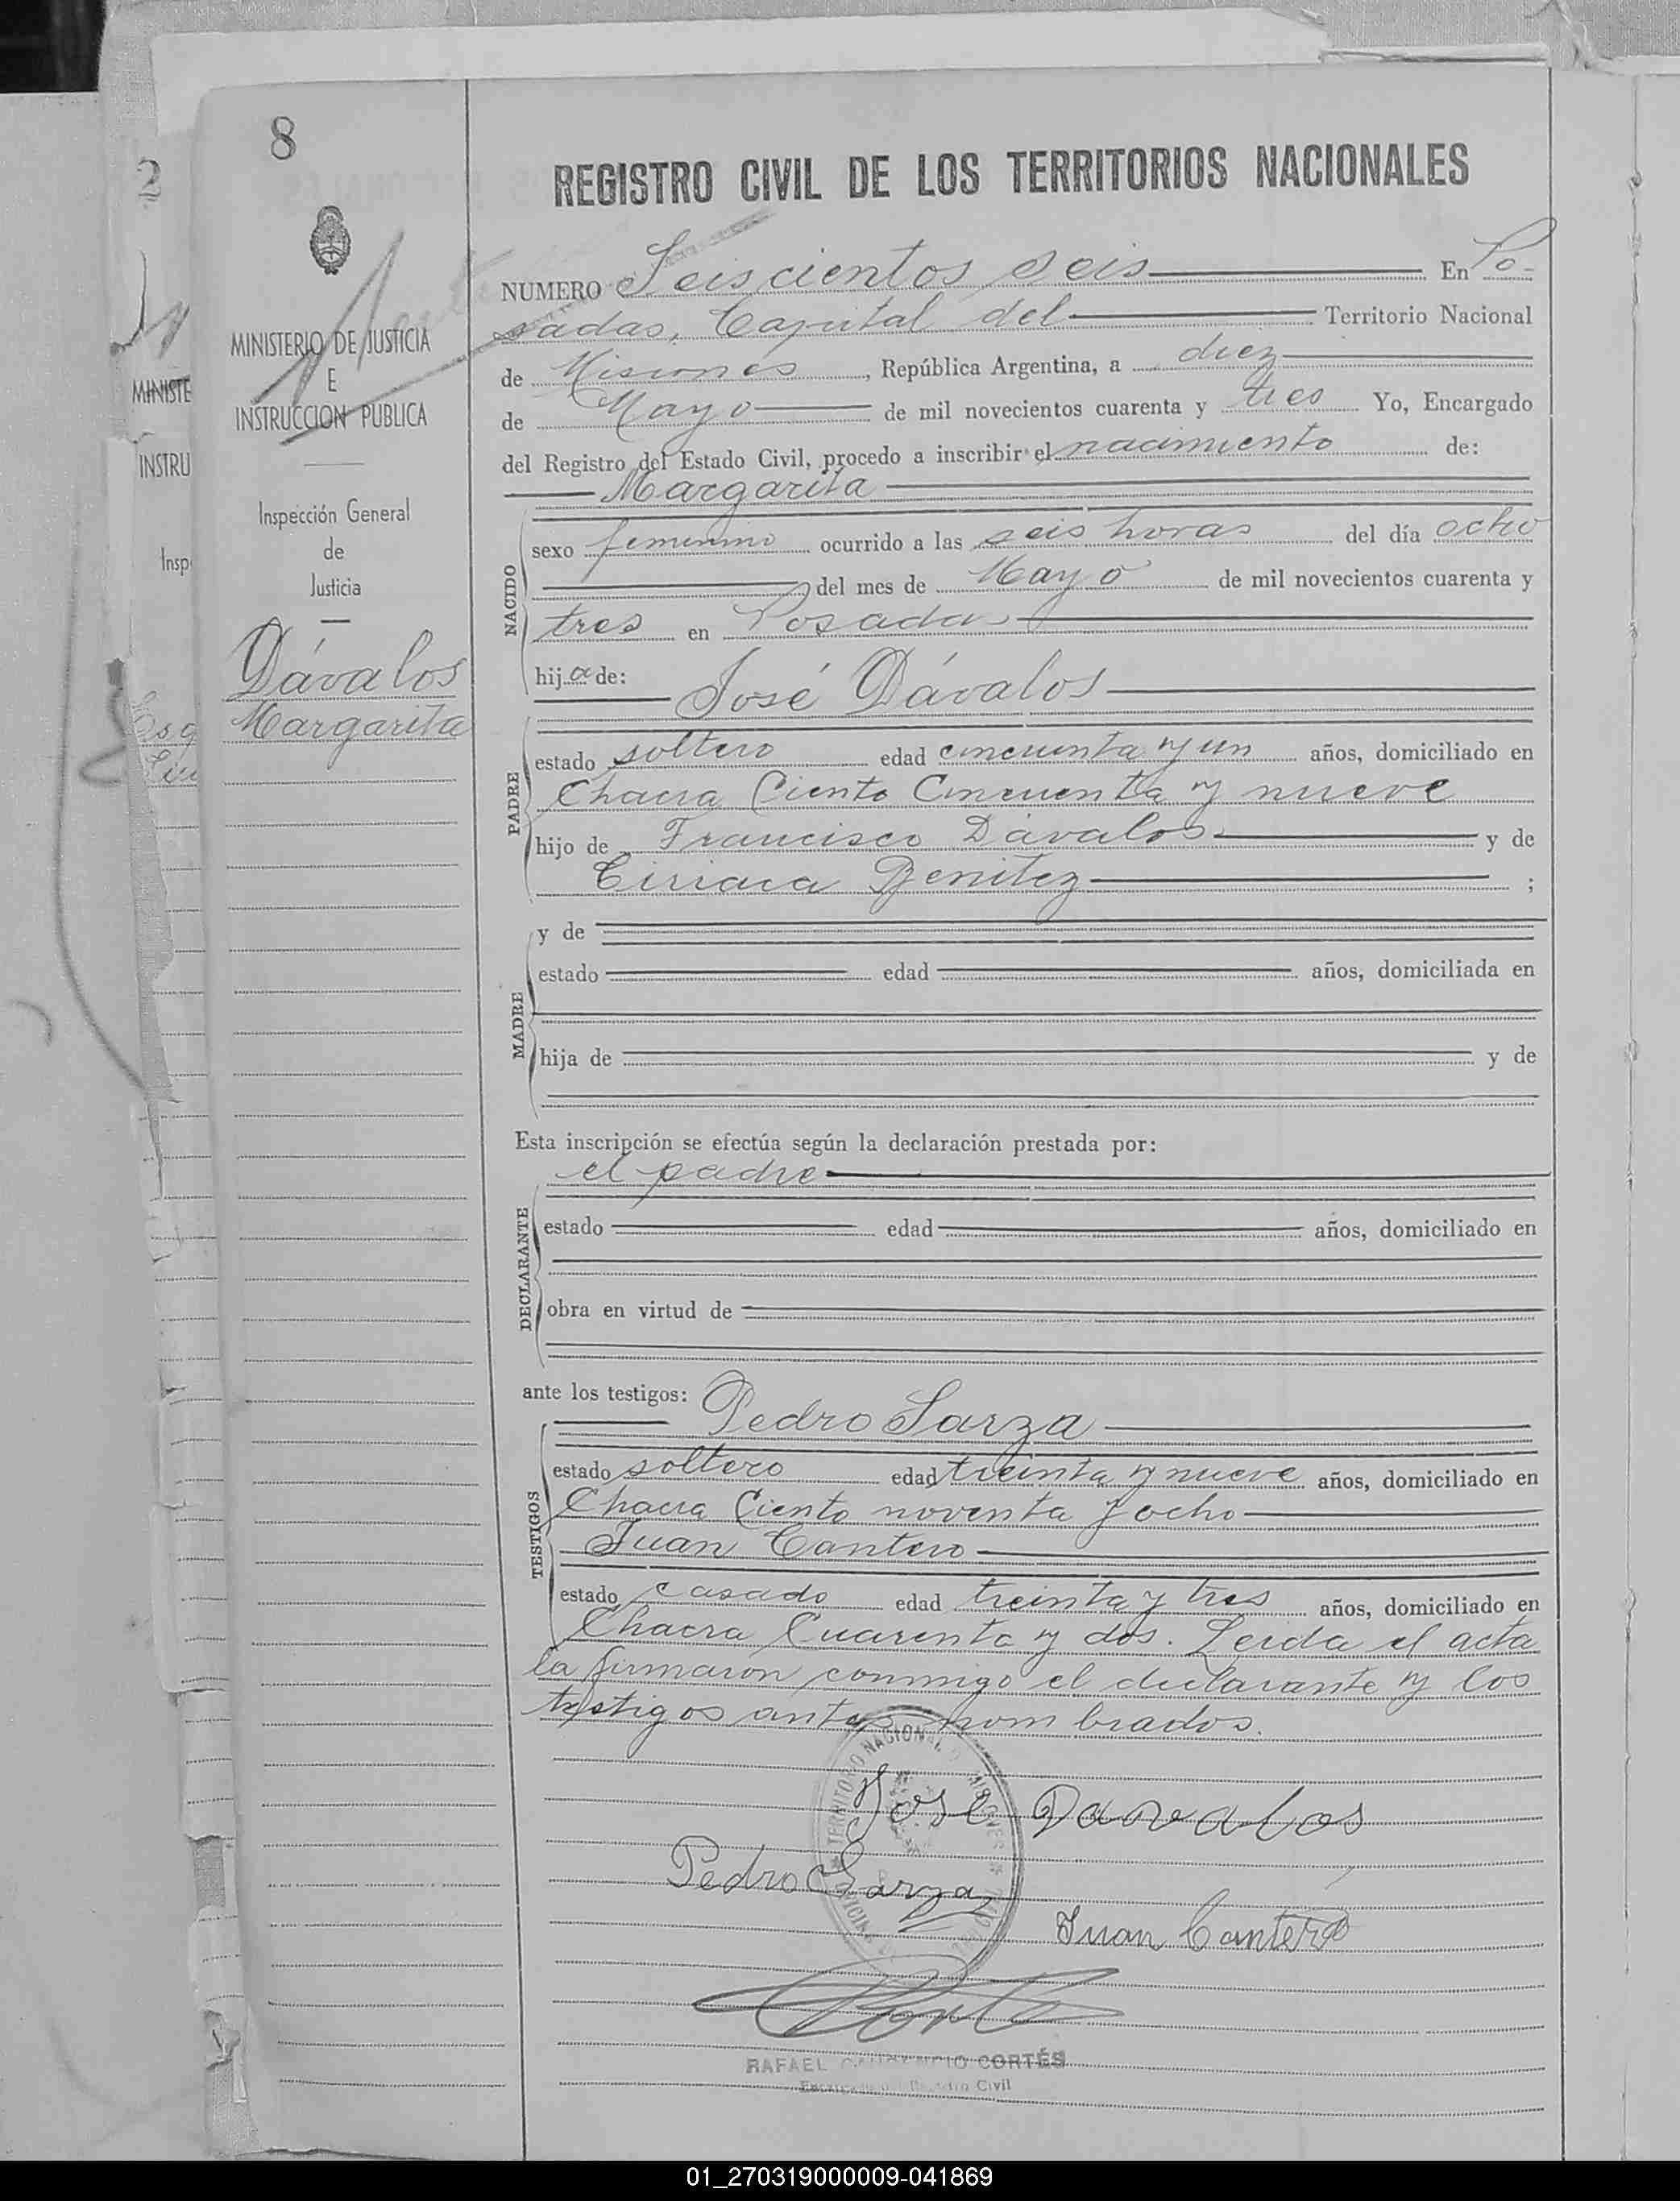 8
2
MINISTERIO DE JUSTICIA
E
INSTRUCCION PUBLICA
Inspección General
de
Justicia
Dávalos
Margarita
MINISTE
INSTRU
Insp
REGISTRO CIVIL DE LOS TERRITORIOS NACIONALES
NUMERO Seiscientos seis En Po-
sadas, Capital del Territorio Nacional
de Misiones, República Argentina, a diez
de Mayo de mil novecientos cuarenta y tres Yo, Encargado
del Registro del Estado Civil, procedo a inscribir el nacimiento de:
Margarita
NACIDO
sexo femenino ocurrido a las seis horas del día ocho
del mes de Mayo de mil novecientos cuarenta y
tres en Posadas
hija de:
José Dávalos
PADRE
estado soltero edad cincuenta y un años, domiciliado en
Chacra Ciento Cincuenta y nueve
hijo de Francisco Dávalos y de
Ciriaca Benitez ;
MADRE
y de
estado edad años, domiciliada en
hija de y de
Esta inscripción se efectúa según la declaración prestada por:
el padre
DECLARANTE
estado edad años, domiciliado en
obra en virtud de
ante los testigos:
Pedro Sarza
TESTIGOS
estado soltero edad treinta y nueve años, domiciliado en
Chacra Ciento noventa y ocho
Juan Cantero
estado casado edad treinta y tres años, domiciliado en
Chacra Cuarenta y dos. Leida el acta
la firmaron conmigo el declarante y los
testigos antes nombrados.
José Davalos
Pedro Sarza
Juan Cantero
RAFAEL CORTÉS
Encargado del Registro Civil
01_270319000009-041869